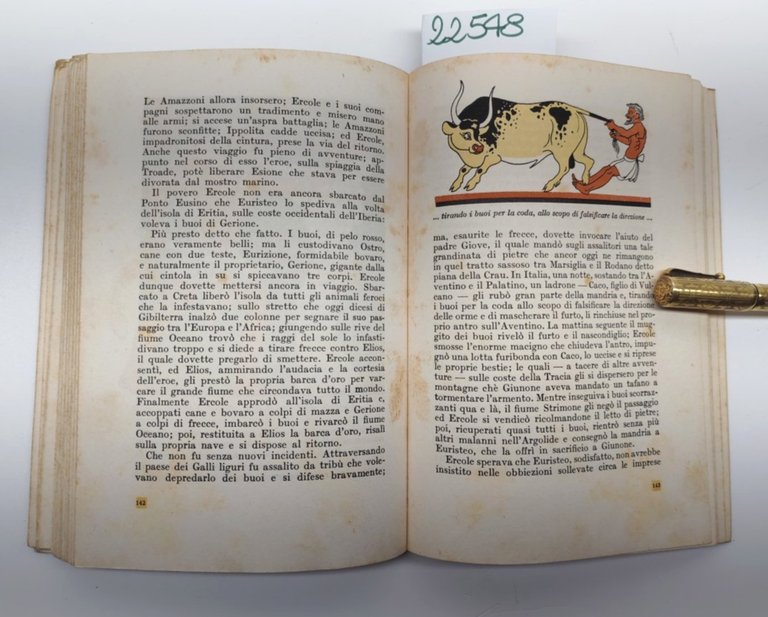 22548
Le Amazzoni allora insorsero; Ercole e i suoi com-
pagni sospettarono un tradimento e misero mano
alle armi; si accese un'aspra battaglia; le Amazzoni
furono sconfitte; Ippolita cadde uccisa; ed Ercole,
impadronitosi della cintura, prese la via del ritorno.
Anche questo viaggio fu pieno di avventure; ap-
punto nel corso di esso l'eroe, sulla spiaggia della
Troade, potè liberare Esione che stava per essere
divorata dal mostro marino.
Il povero Ercole non era ancora sbarcato dal
Ponto Eusino che Euristeo lo spediva alla volta
dell'isola di Eritia, sulle coste occidentali dell'Iberia:
voleva i buoi di Gerione.
Più presto detto che fatto. I buoi, di pelo rosso,
erano veramente belli; ma li custodivano Ostro,
cane con due teste, Eurizione, formidabile bovaro,
e naturalmente il proprietario, Gerione, gigante dalla
cui cintola in su si spiccavano tre corpi. Ercole
dunque dovette mettersi ancora in viaggio. Sbar-
cato a Creta liberò l'isola da tutti gli animali feroci
che la infestavano; sullo stretto che oggi dicesi di
Gibilterra inalzò due colonne per segnare il suo pas-
saggio tra l'Europa e l'Africa; giungendo sulle rive del
fiume Oceano trovò che i raggi del sole lo infasti-
divano troppo e si diede a tirare frecce contro Elios,
il quale dovette pregarlo di smettere. Ercole accon-
sentì, ed Elios, ammirando l'audacia e la cortesia
dell'eroe, gli prestò la propria barca d'oro per var-
care il grande fiume che circondava tutto il mondo.
Finalmente Ercole approdò all'isola di Eritia e,
accoppati cane e bovaro a colpi di mazza e Gerione
a colpi di frecce, imbarcò i buoi e rivarcò il fiume
Oceano; poi, restituita a Elios la barca d'oro, risalì
sulla propria nave e si dispose al ritorno.
Che non fu senza nuovi incidenti. Attraversando
il paese dei Galli liguri fu assalito da tribù che vole-
vano depredarlo dei buoi e si difese bravamente;
142
... tirando i buoi per la coda, allo scopo di falsificare la direzione ...
ma, esaurite le frecce, dovette invocare l'aiuto del
padre Giove, il quale mandò sugli assalitori una tale
grandinata di pietre che ancor oggi ne rimangono
in quel tratto sassoso tra Marsiglia e il Rodano detto
piana della Crau. In Italia, una notte, sostando tra l'A-
ventino e il Palatino, un ladrone — Caco, figlio di Vul-
cano — gli rubò gran parte della mandria e, tirando
i buoi per la coda allo scopo di falsificare la direzione
delle orme e di mascherare il furto, li rinchiuse nel pro-
prio antro sull'Aventino. La mattina seguente il mug-
gito dei buoi rivelò il furto e il nascondiglio; Ercole
smosse l'enorme macigno che chiudeva l'antro, impu-
gnò una lotta furibonda con Caco, lo uccise e si riprese
le proprie bestie; le quali — a tacere di altre avven-
ture — sulle coste della Tracia gli si dispersero per le
montagne chè Giunone aveva mandato un tafano a
tormentare l'armento. Mentre inseguiva i buoi scoraz-
zanti qua e là, il fiume Strimone gli negò il passaggio
ed Ercole si vendicò ricolmandone il letto di pietre;
poi, ricuperati quasi tutti i buoi, rientrò senza più
altri malanni nell'Argolide e consegnò la mandria a
Euristeo, che la offrì in sacrificio a Giunone.
Ercole sperava che Euristeo, sodisfatto, non avrebbe
insistito nelle obbiezioni sollevate circa le imprese
143